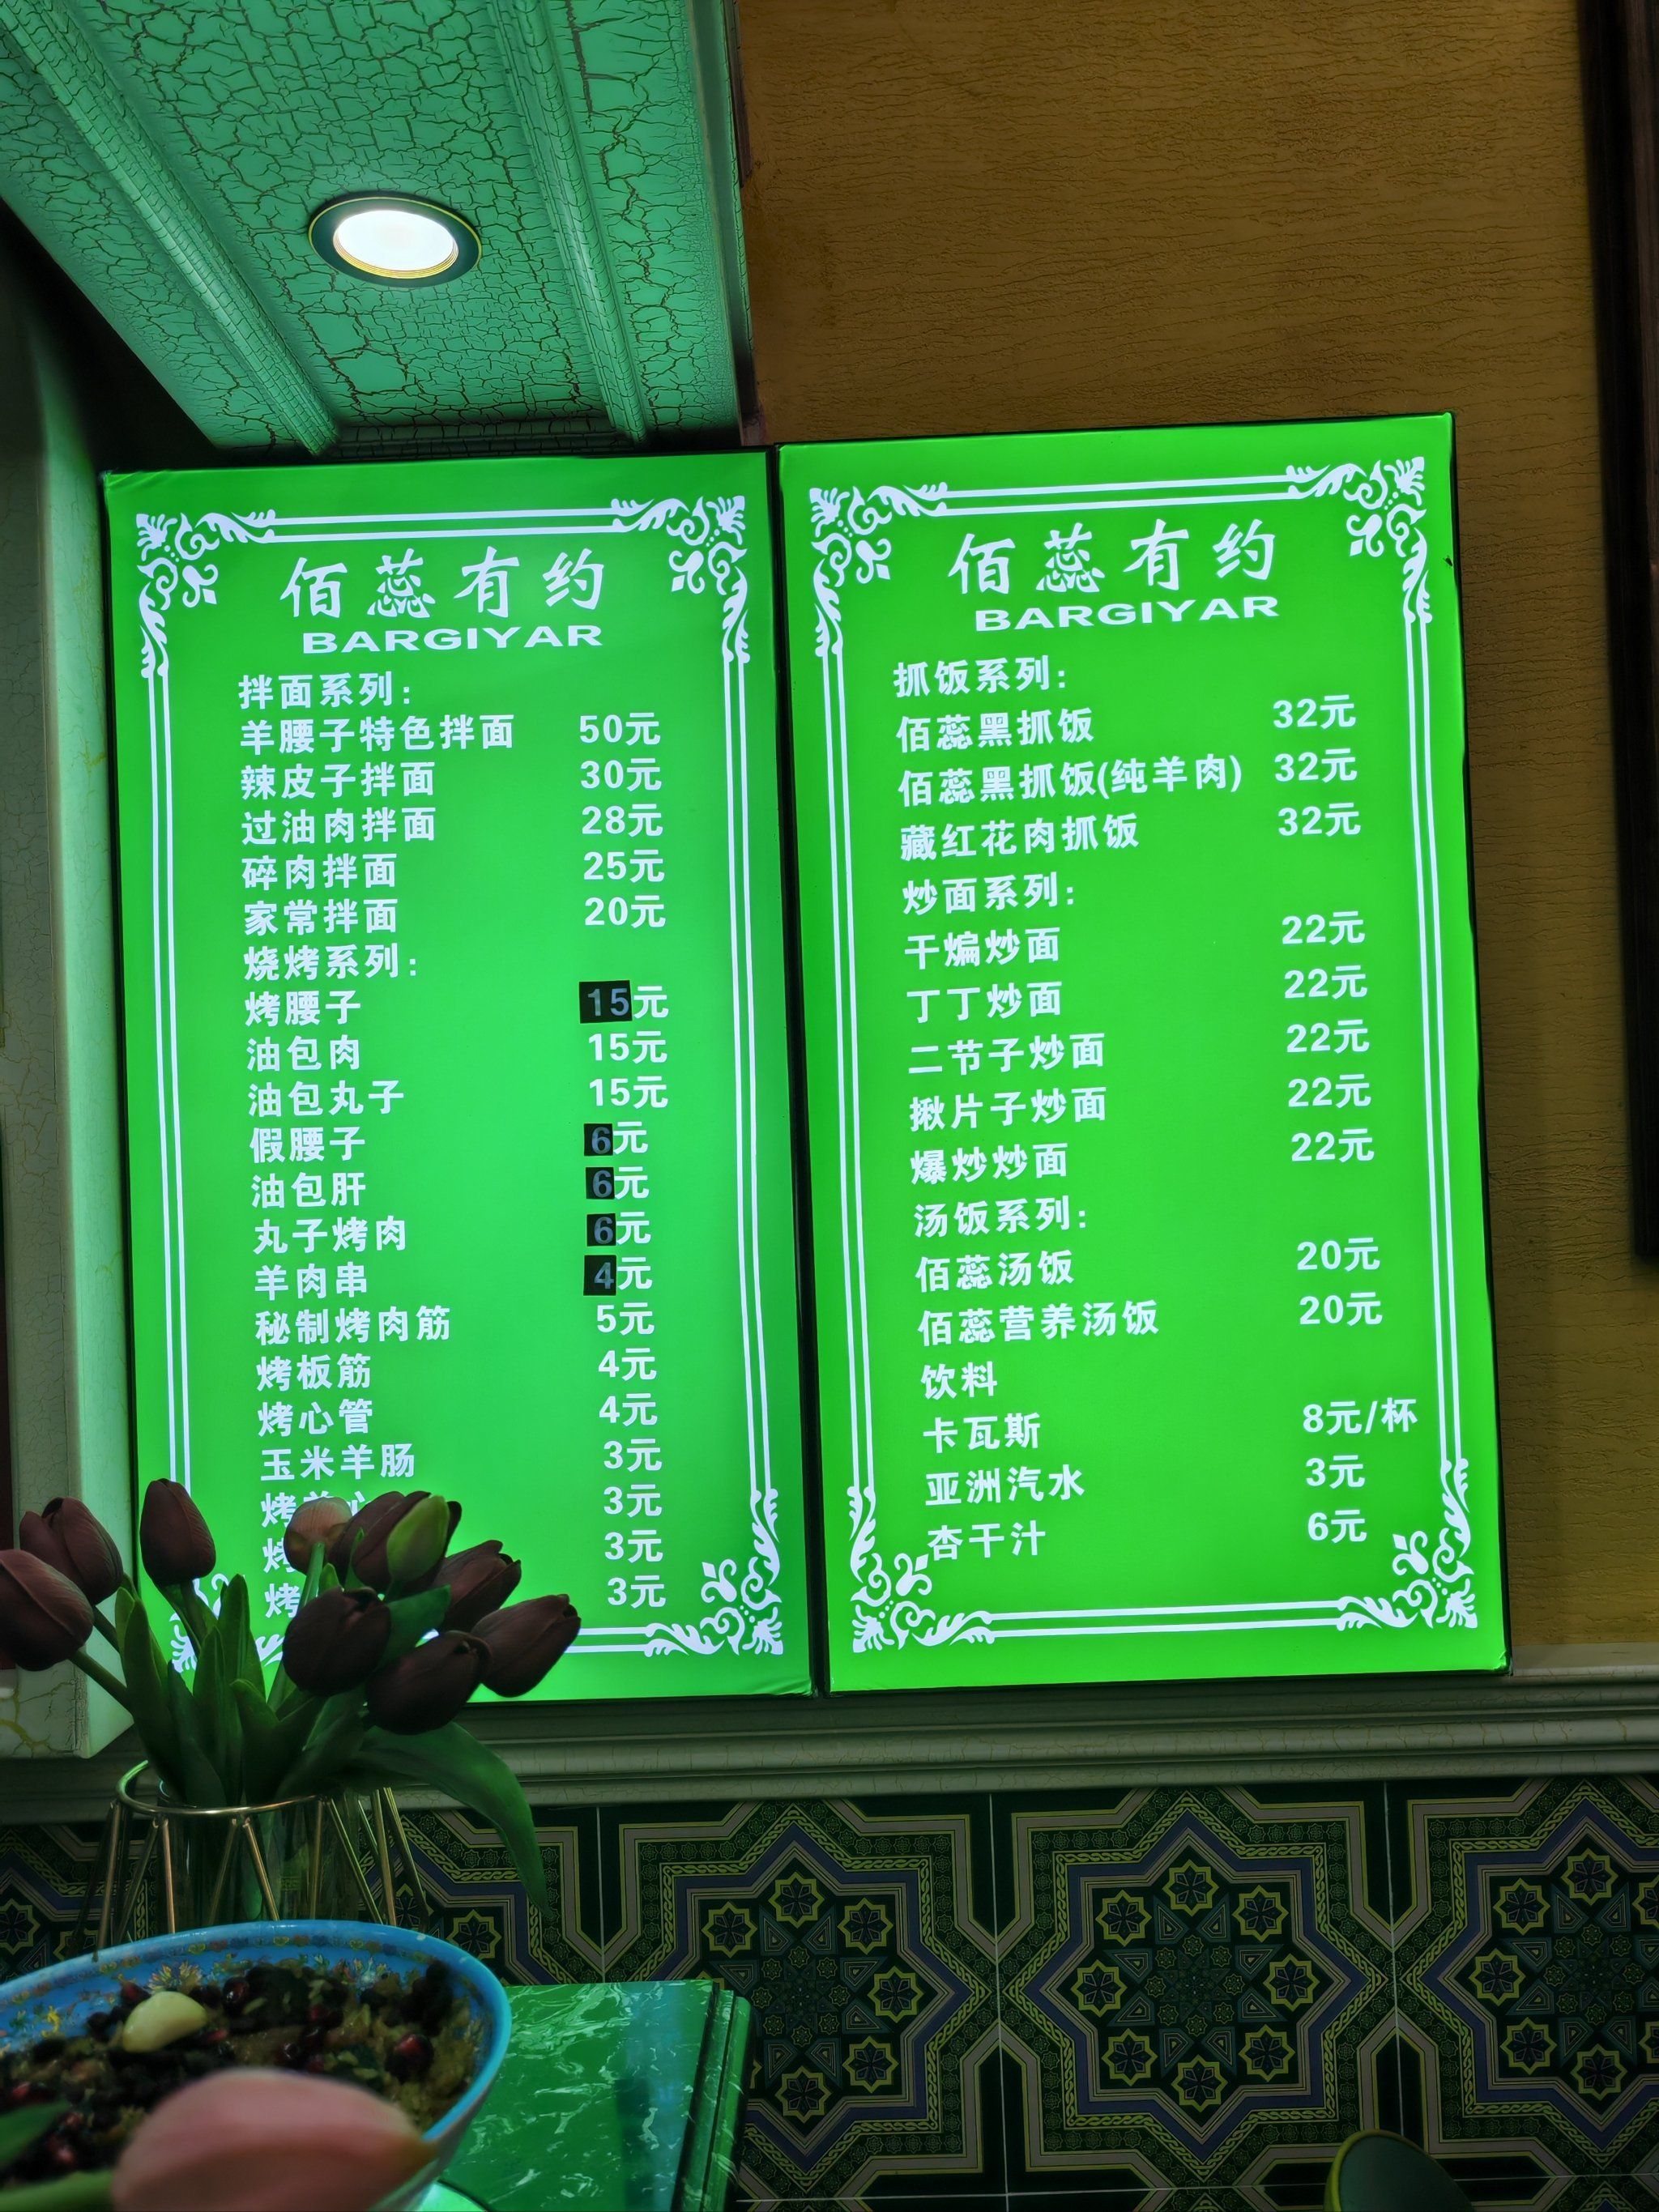 佰蕊有约
BARGIYAR
拌面系列：
羊腰子特色拌面 50元
辣皮子拌面 30元
过油肉拌面 28元
碎肉拌面 25元
家常拌面 20元
烧烤系列：
烤腰子 15元
油包肉 15元
油包丸子 15元
假腰子 6元
油包肝 6元
丸子烤肉 6元
羊肉串 4元
秘制烤肉筋 5元
烤板筋 4元
烤心管 4元
玉米羊肠 3元
烤 3元
烤 3元
烤 3元
佰蕊有约
BARGIYAR
抓饭系列：
佰蕊黑抓饭 32元
佰蕊黑抓饭(纯羊肉) 32元
藏红花肉抓饭 32元
炒面系列：
干煸炒面 22元
丁丁炒面 22元
二节子炒面 22元
揪片子炒面 22元
爆炒炒面 22元
汤饭系列：
佰蕊汤饭 20元
佰蕊营养汤饭 20元
饮料
卡瓦斯 8元/杯
亚洲汽水 3元
杏干汁 6元